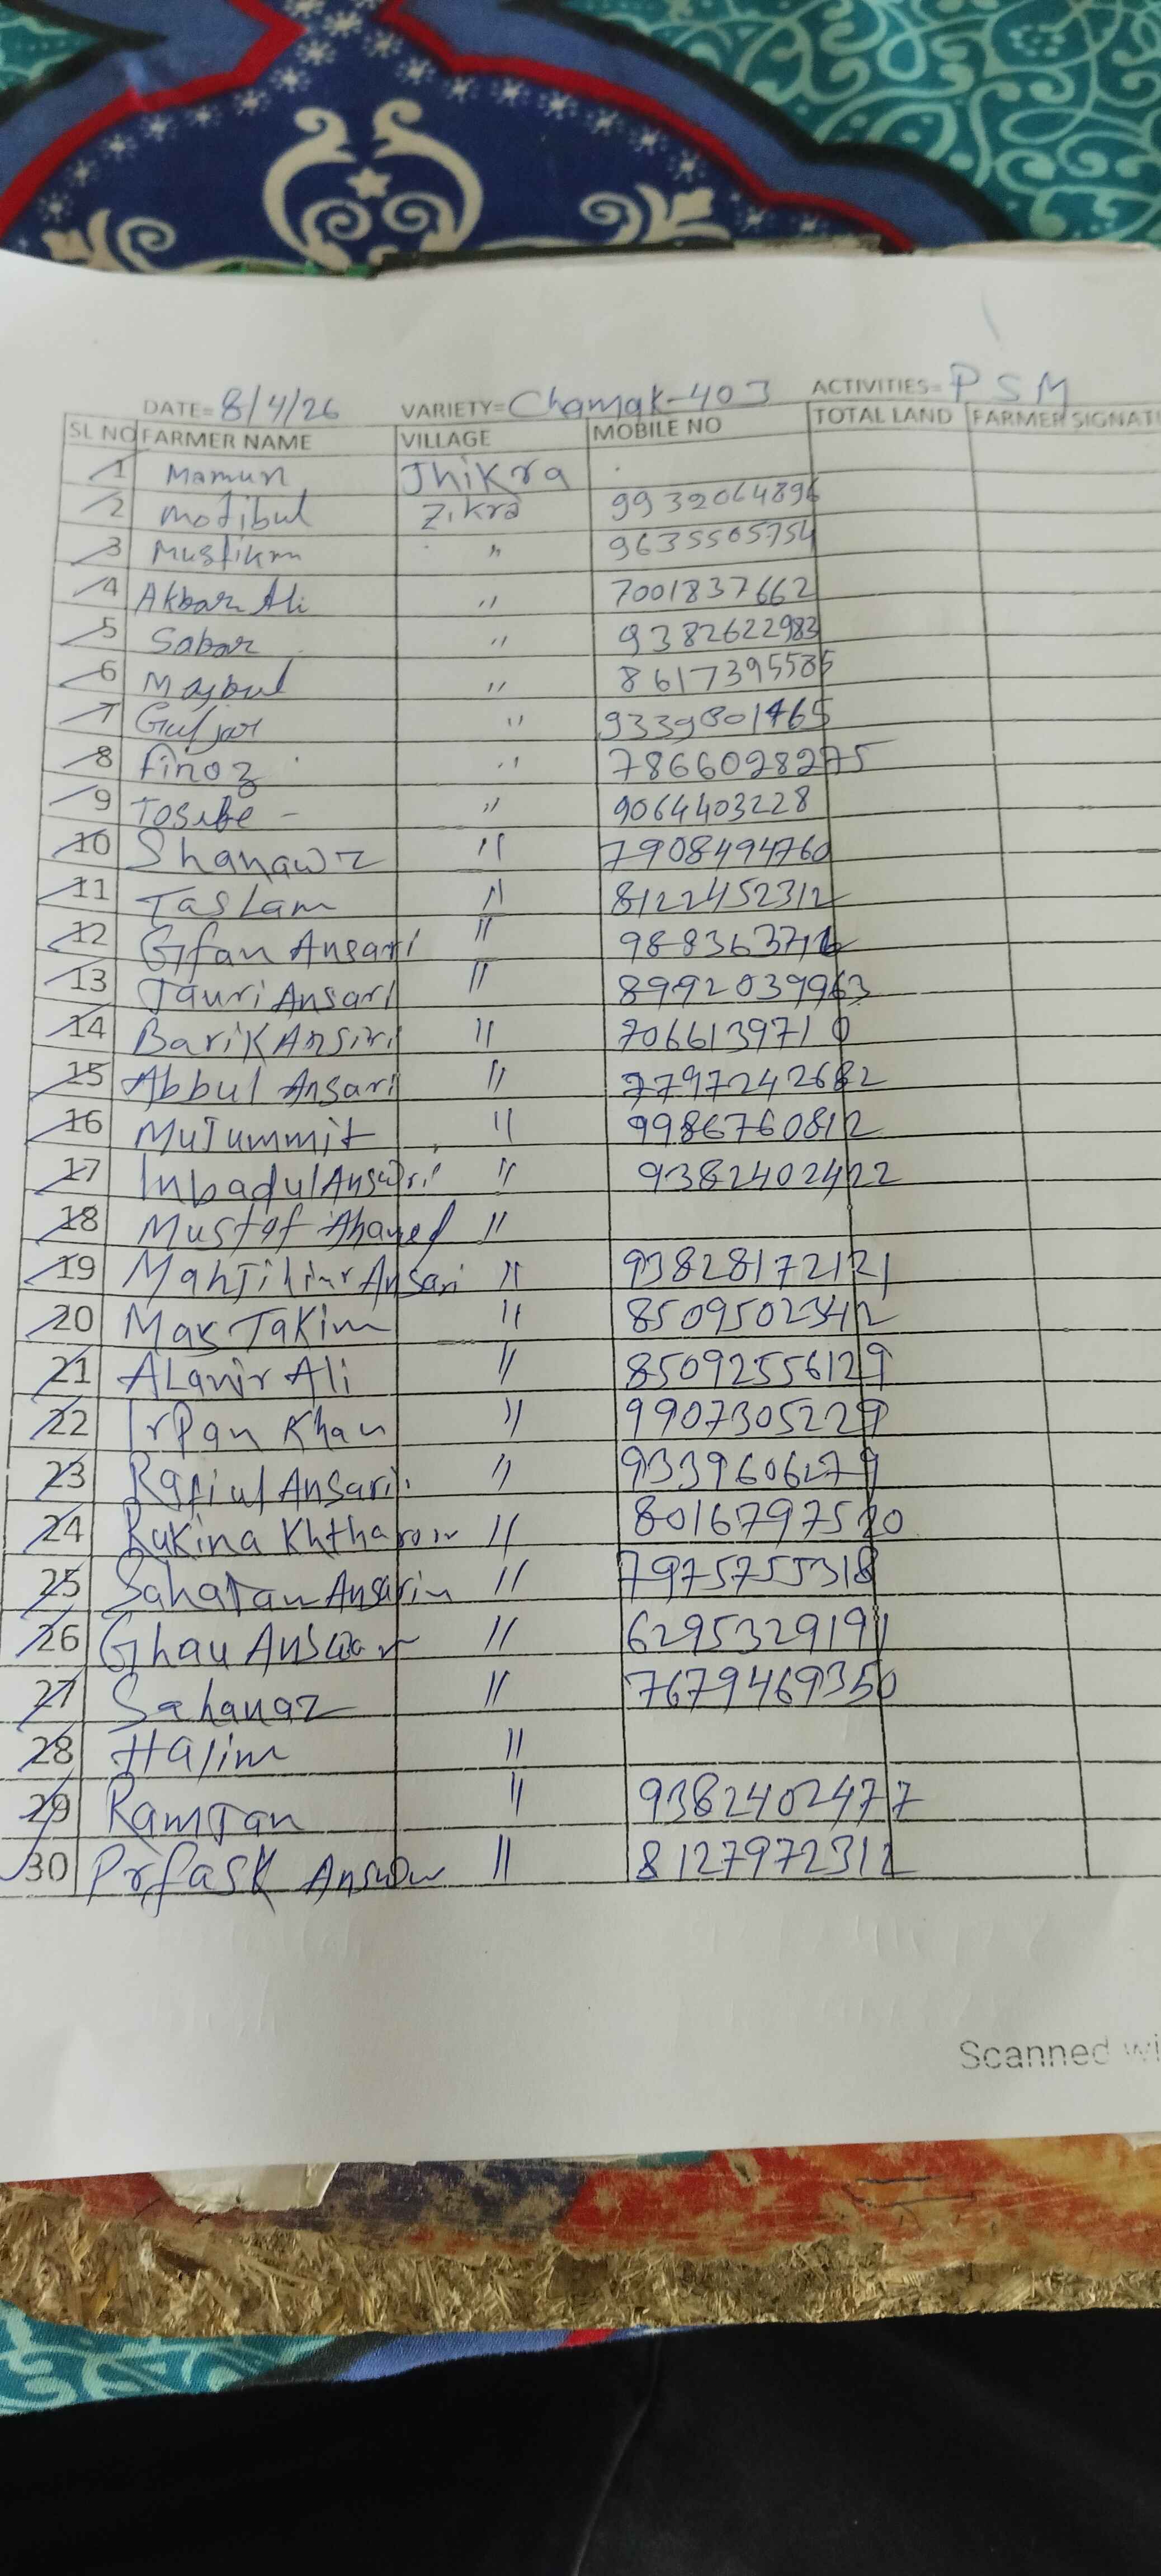 DATE= 8/4/26 VARIETY= Chamak-403 ACTIVITIES= P S M
SL NO FARMER NAME VILLAGE MOBILE NO TOTAL LAND FARMER SIGNAT
1 Mamun Jhikra
2 Mofibul Zikra 9932064896
3 Mustikm " 9635505754
4 Akbar Ali " 7001837662
5 Sabar " 9382622983
6 Majbul " 8617395585
7 Guljar " 9339801465
8 finoz " 7866028275
9 Tosibe - " 9064403228
10 Shanawz " 7908494760
11 Taslam " 8122452312
12 Gfan Ansari "
13 Jauri Ansari " 8992039963
14 Barik Ansiri " 7066139710
15 Abbul Ansari " 7797242682
16 Mujummit " 9986760812
17 Inbadul Ansari " 9382402422
18 Mustaf Ahamed "
19 Ansari " 93828172121
20 Mas Takim " 8509502342
21 ALamir Ali " 85092556129
22 Irpan Khan " 9907305229
23 Rafiul Ansari " 9339606279
24 Rukina Khtharoon " 8016797520
25 Sahatan Ansarin " 7975755318
26 Ghau Ansaar " 6295329191
27 Sahanaz " 7679469350
28 Halim "
29 Ramjan " 9382402477
30 Prfask " 8127972312
Scanned wi